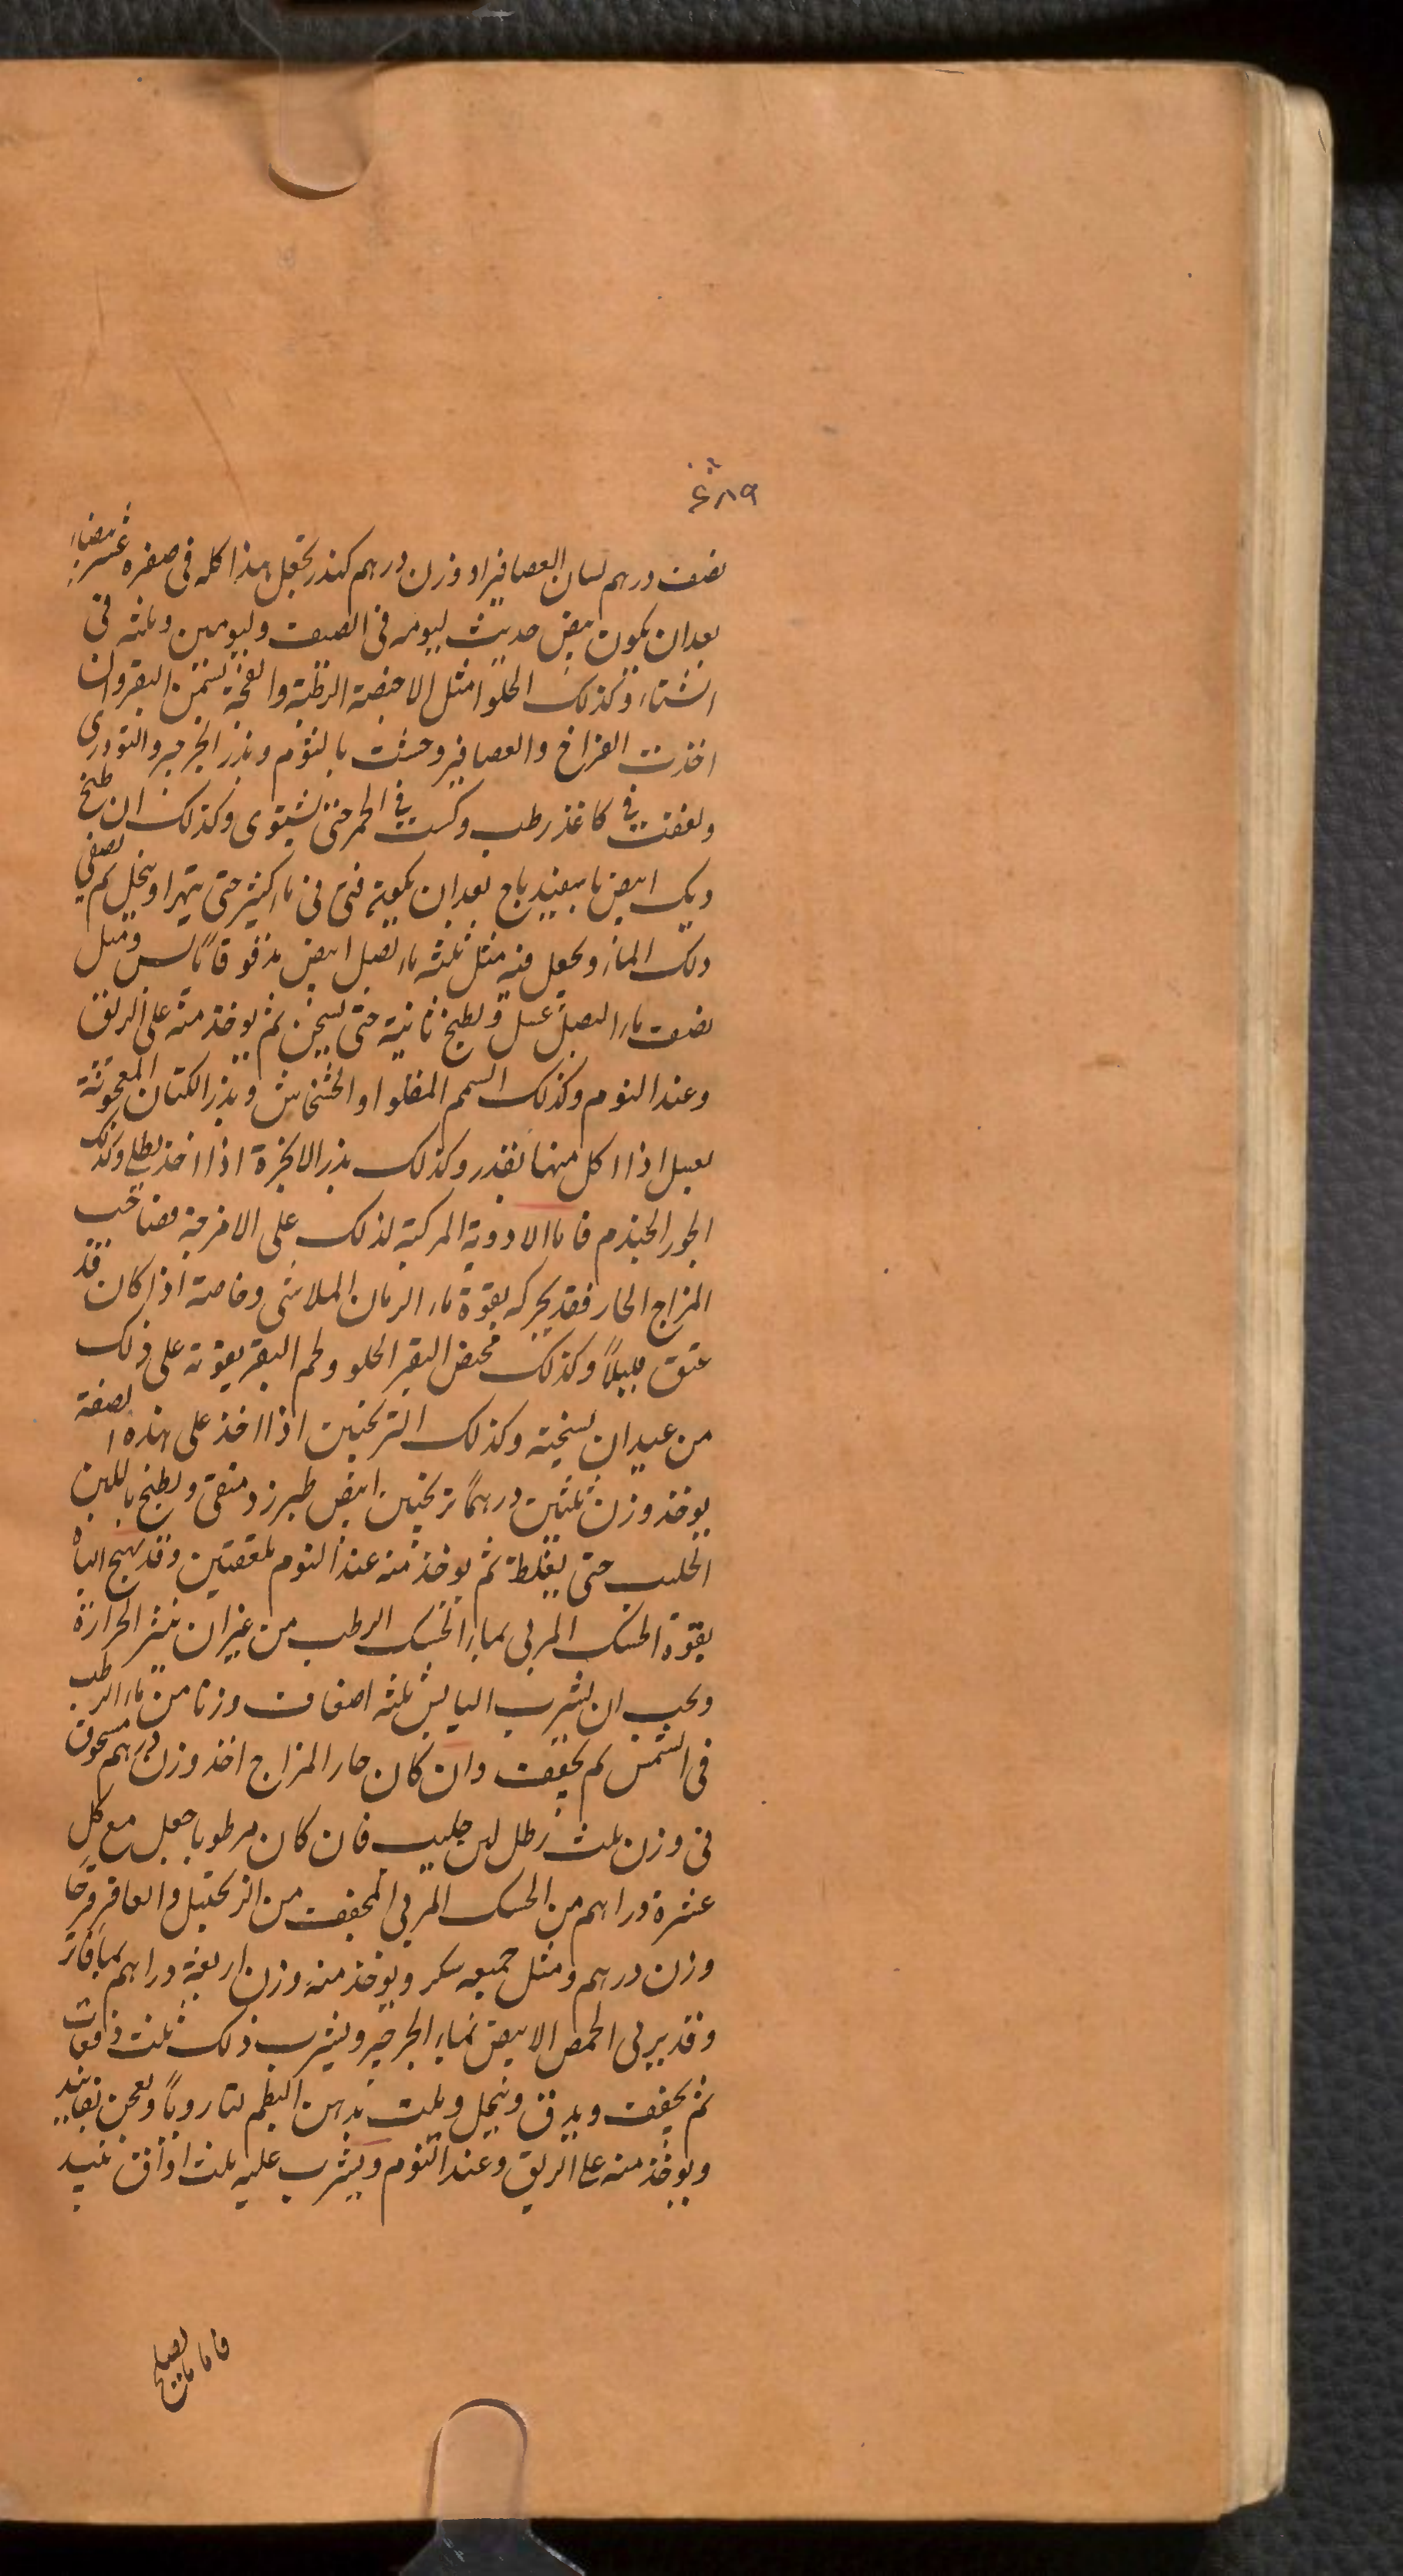 ٤٨٩
نصف درهم لسان العصافير او وزن درهم كندر تجعل هذا كله فى صفرة عشر بيضات
بعد ان يكون بيض حديث ليومه فى الصيف وليومين وثلثه فى
الشتاء وكذلك الحلوا مثل الاخبصة الرطبة بسمن البقر وان
اخذت الفراخ والعصافير وحشيت بالثوم وبذر الجرجير والتودرى
ولففت فى كاغذ رطب وكبت فى الجمر حتى تشتوى وكذلك ان طبخ
ديك ابيض باسفيدباج بعد ان يكون فتى فى ماء كثير حتى يتهرا وينخل ثم يصفى
ذلك الماء ويجعل فيه مثل ثلثه ماء بصل ابيض مدقوقا ومثل
نصف ماء البصل عسل ويطبخ ثانية حتى يثخن ثم يوخذ منه على الريق
وعند النوم وكذلك السمسم المقلو او الخشخاش وبذر الكتان المعجونة
بعسل اذا اكل منها بقدر وكذلك بذر الانجرة اذا اخذ بطلا وكذلك
الجوز الجندم فاما الادوية المركبة لذلك على الامزجة فصاحب
المزاج الحار فقد يحركه بقوة ماء الرمان الملاسى وخاصة اذا كان قد
عتق قليلاً وكذلك مخيض البقر الحلو ولحم البقر يقوته على ذلك
من غير ان يسخنه وكذلك الترنجبين اذا اخذ على هذه الصفة
يوخذ وزن ثلثين درهماً ترنجبين ابيض طبرزد منقى ويطبخ باللبن
الحليب حتى يغلظ ثم يوخذ منه عند النوم ملعقتين وقد يهيج الباه
بقوة الحسك المربى بماء الحسك الرطب من غير ان يثير الحرارة
ويجب ان يشرب اليابس ثلثه اضعاف وزنا من ماء الرطب
فى الشمس ثم يجفف وان كان حار المزاج اخذ وزن درهم مسحوق
فى وزن ثلث رطل لبن حليب فان كان مرطوبا جعل مع كل
عشرة دراهم من الحسك المربى المجفف من الزنجبيل والعاقرقرحا
وزن درهم ومثل جميعه سكر ويوخذ منه وزن اربعة دراهم بما فاتر
وقد يربى الحمص الابيض بماء الجرجير ويشرب ذلك ثلث دفعات
ثم يجفف ويدق وينخل ويلت بدهن البطم لتا رويا ويعجن بفانيذ
ويوخذ منه على الريق وعند النوم ويشرب عليه ثلث اواق نبيذ
فاما ما يصلح